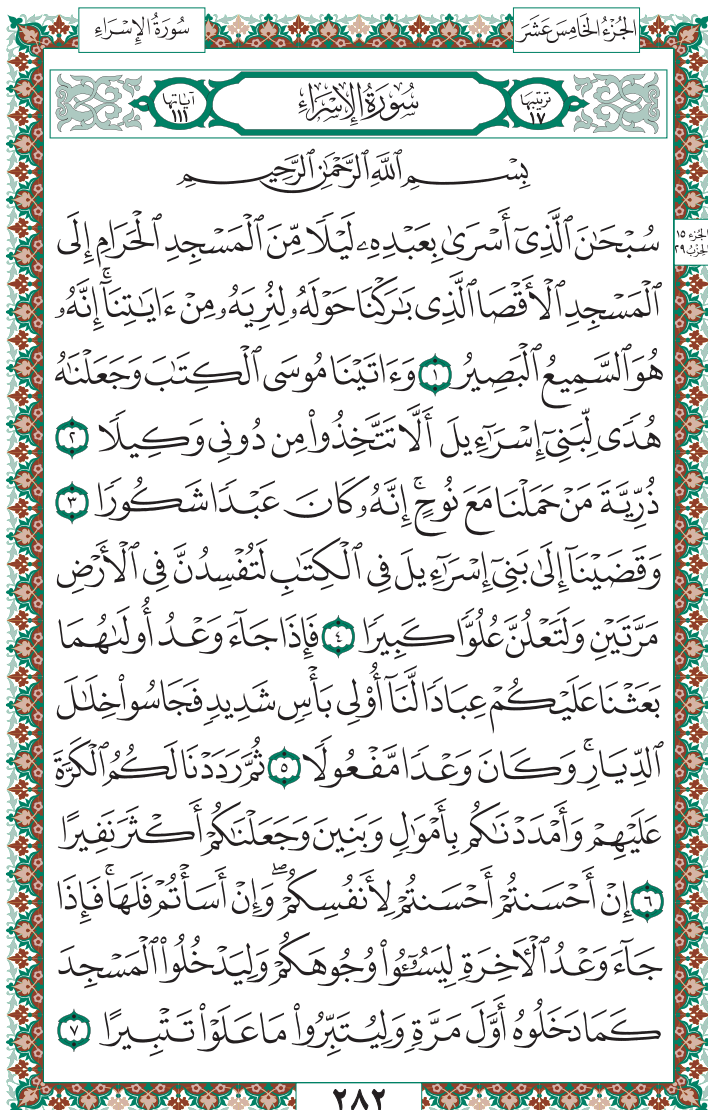 الجُزْءُ الخَامِسَ عَشَرَ
سُورَةُ الإِسْرَاءِ
ترتيبها ١٧
سُورَةُ الإِسْرَاءِ
آياتها ١١١
بِسْمِ ٱللَّهِ ٱلرَّحْمَٰنِ ٱلرَّحِيمِ
سُبْحَٰنَ ٱلَّذِىٓ أَسْرَىٰ بِعَبْدِهِۦ لَيْلًا مِّنَ ٱلْمَسْجِدِ ٱلْحَرَامِ إِلَى
الجزء ١٥
الحزب ٢٩
ٱلْمَسْجِدِ ٱلْأَقْصَا ٱلَّذِى بَٰرَكْنَا حَوْلَهُۥ لِنُرِيَهُۥ مِنْ ءَايَٰتِنَآ ۚ إِنَّهُۥ
هُوَ ٱلسَّمِيعُ ٱلْبَصِيرُ ١ وَءَاتَيْنَا مُوسَى ٱلْكِتَٰبَ وَجَعَلْنَٰهُ
هُدًى لِّبَنِىٓ إِسْرَٰٓءِيلَ أَلَّا تَتَّخِذُوا۟ مِن دُونِى وَكِيلًا ٢
ذُرِّيَّةَ مَنْ حَمَلْنَا مَعَ نُوحٍ ۚ إِنَّهُۥ كَانَ عَبْدًا شَكُورًا ٣
وَقَضَيْنَآ إِلَىٰ بَنِىٓ إِسْرَٰٓءِيلَ فِى ٱلْكِتَٰبِ لَتُفْسِدُنَّ فِى ٱلْأَرْضِ
مَرَّتَيْنِ وَلَتَعْلُنَّ عُلُوًّا كَبِيرًا ٤ فَإِذَا جَآءَ وَعْدُ أُولَىٰهُمَا
بَعَثْنَا عَلَيْكُمْ عِبَادًا لَّنَآ أُو۟لِى بَأْسٍ شَدِيدٍ فَجَاسُوا۟ خِلَٰلَ
ٱلدِّيَارِ ۚ وَكَانَ وَعْدًا مَّفْعُولًا ٥ ثُمَّ رَدَدْنَا لَكُمُ ٱلْكَرَّةَ
عَلَيْهِمْ وَأَمْدَدْنَٰكُم بِأَمْوَٰلٍ وَبَنِينَ وَجَعَلْنَٰكُمْ أَكْثَرَ نَفِيرًا
٦ إِنْ أَحْسَنتُمْ أَحْسَنتُمْ لِأَنفُسِكُمْ ۖ وَإِنْ أَسَأْتُمْ فَلَهَا ۚ فَإِذَا
جَآءَ وَعْدُ ٱلْءَاخِرَةِ لِيَسُۥٓـُٔوا۟ وُجُوهَكُمْ وَلِيَدْخُلُوا۟ ٱلْمَسْجِدَ
كَمَا دَخَلُوهُ أَوَّلَ مَرَّةٍ وَلِيُتَبِّرُوا۟ مَا عَلَوْا۟ تَتْبِيرًا ٧
٢٨٢